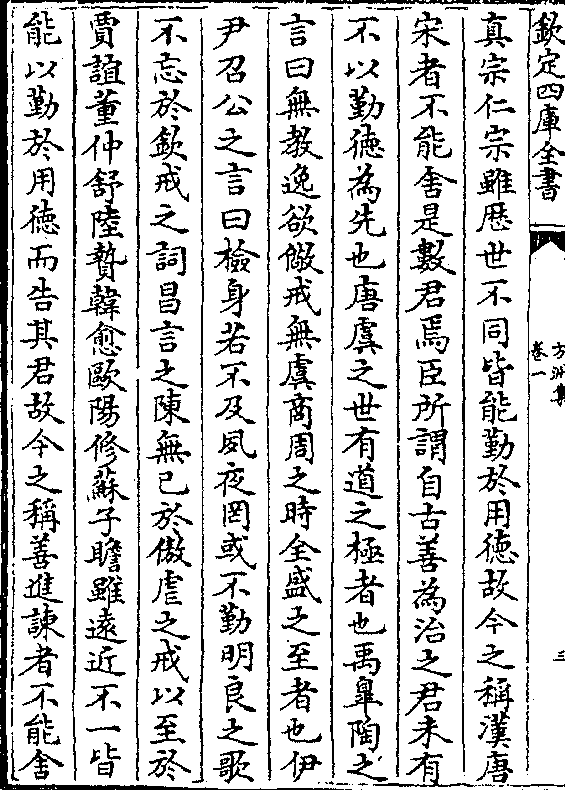 欽定四庫全書
方洲集
卷一
三
真宗仁宗雖歴世不同皆能勤於用徳故今之稱漢唐
宋者不能舍是數君焉臣所謂自古善為治之君未有
不以勤徳為先也唐虞之世有道之極者也禹臯陶之
言曰無教逸欲儆戒無虞商周之時全盛之至者也伊
尹召公之言曰檢身若不及夙夜罔或不勤明良之歌
不忘於欽戒之詞昌言之陳無已於傲虐之戒以至於
賈誼董仲舒陸贄韓愈歐陽修蘇子瞻雖遠近不一皆
能以勤於用徳而告其君故今之稱善進諫者不能舍